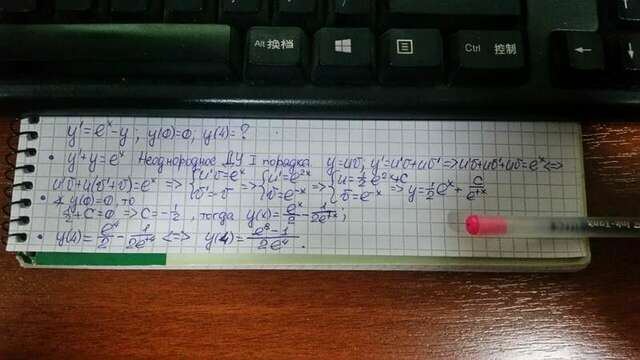 Alt 换档
Ctrl 控制
y' = e^x - y; y(0)=0, y(4)=?
• y'+y=e^x Неоднородное ДУ I порядка. y=uv; y'=u'v+uv' => u'v+uv'+uv=e^x <=>
u'v+u(v'+v)=e^x => {u'v=e^x v'=-v => {u'=e^{2x} v=e^{-x} => {u=1/2 e^{2x}+C v=e^{-x} => y=1/2 e^x + C/e^x
• y(0)=0, то
1/2+C=0 => C=-1/2, тогда y(x)=e^x/2 - 1/2e^x;
• y(4)=e^4/2 - 1/2e^4 <=> y(4)=e^8-1/2e^4.